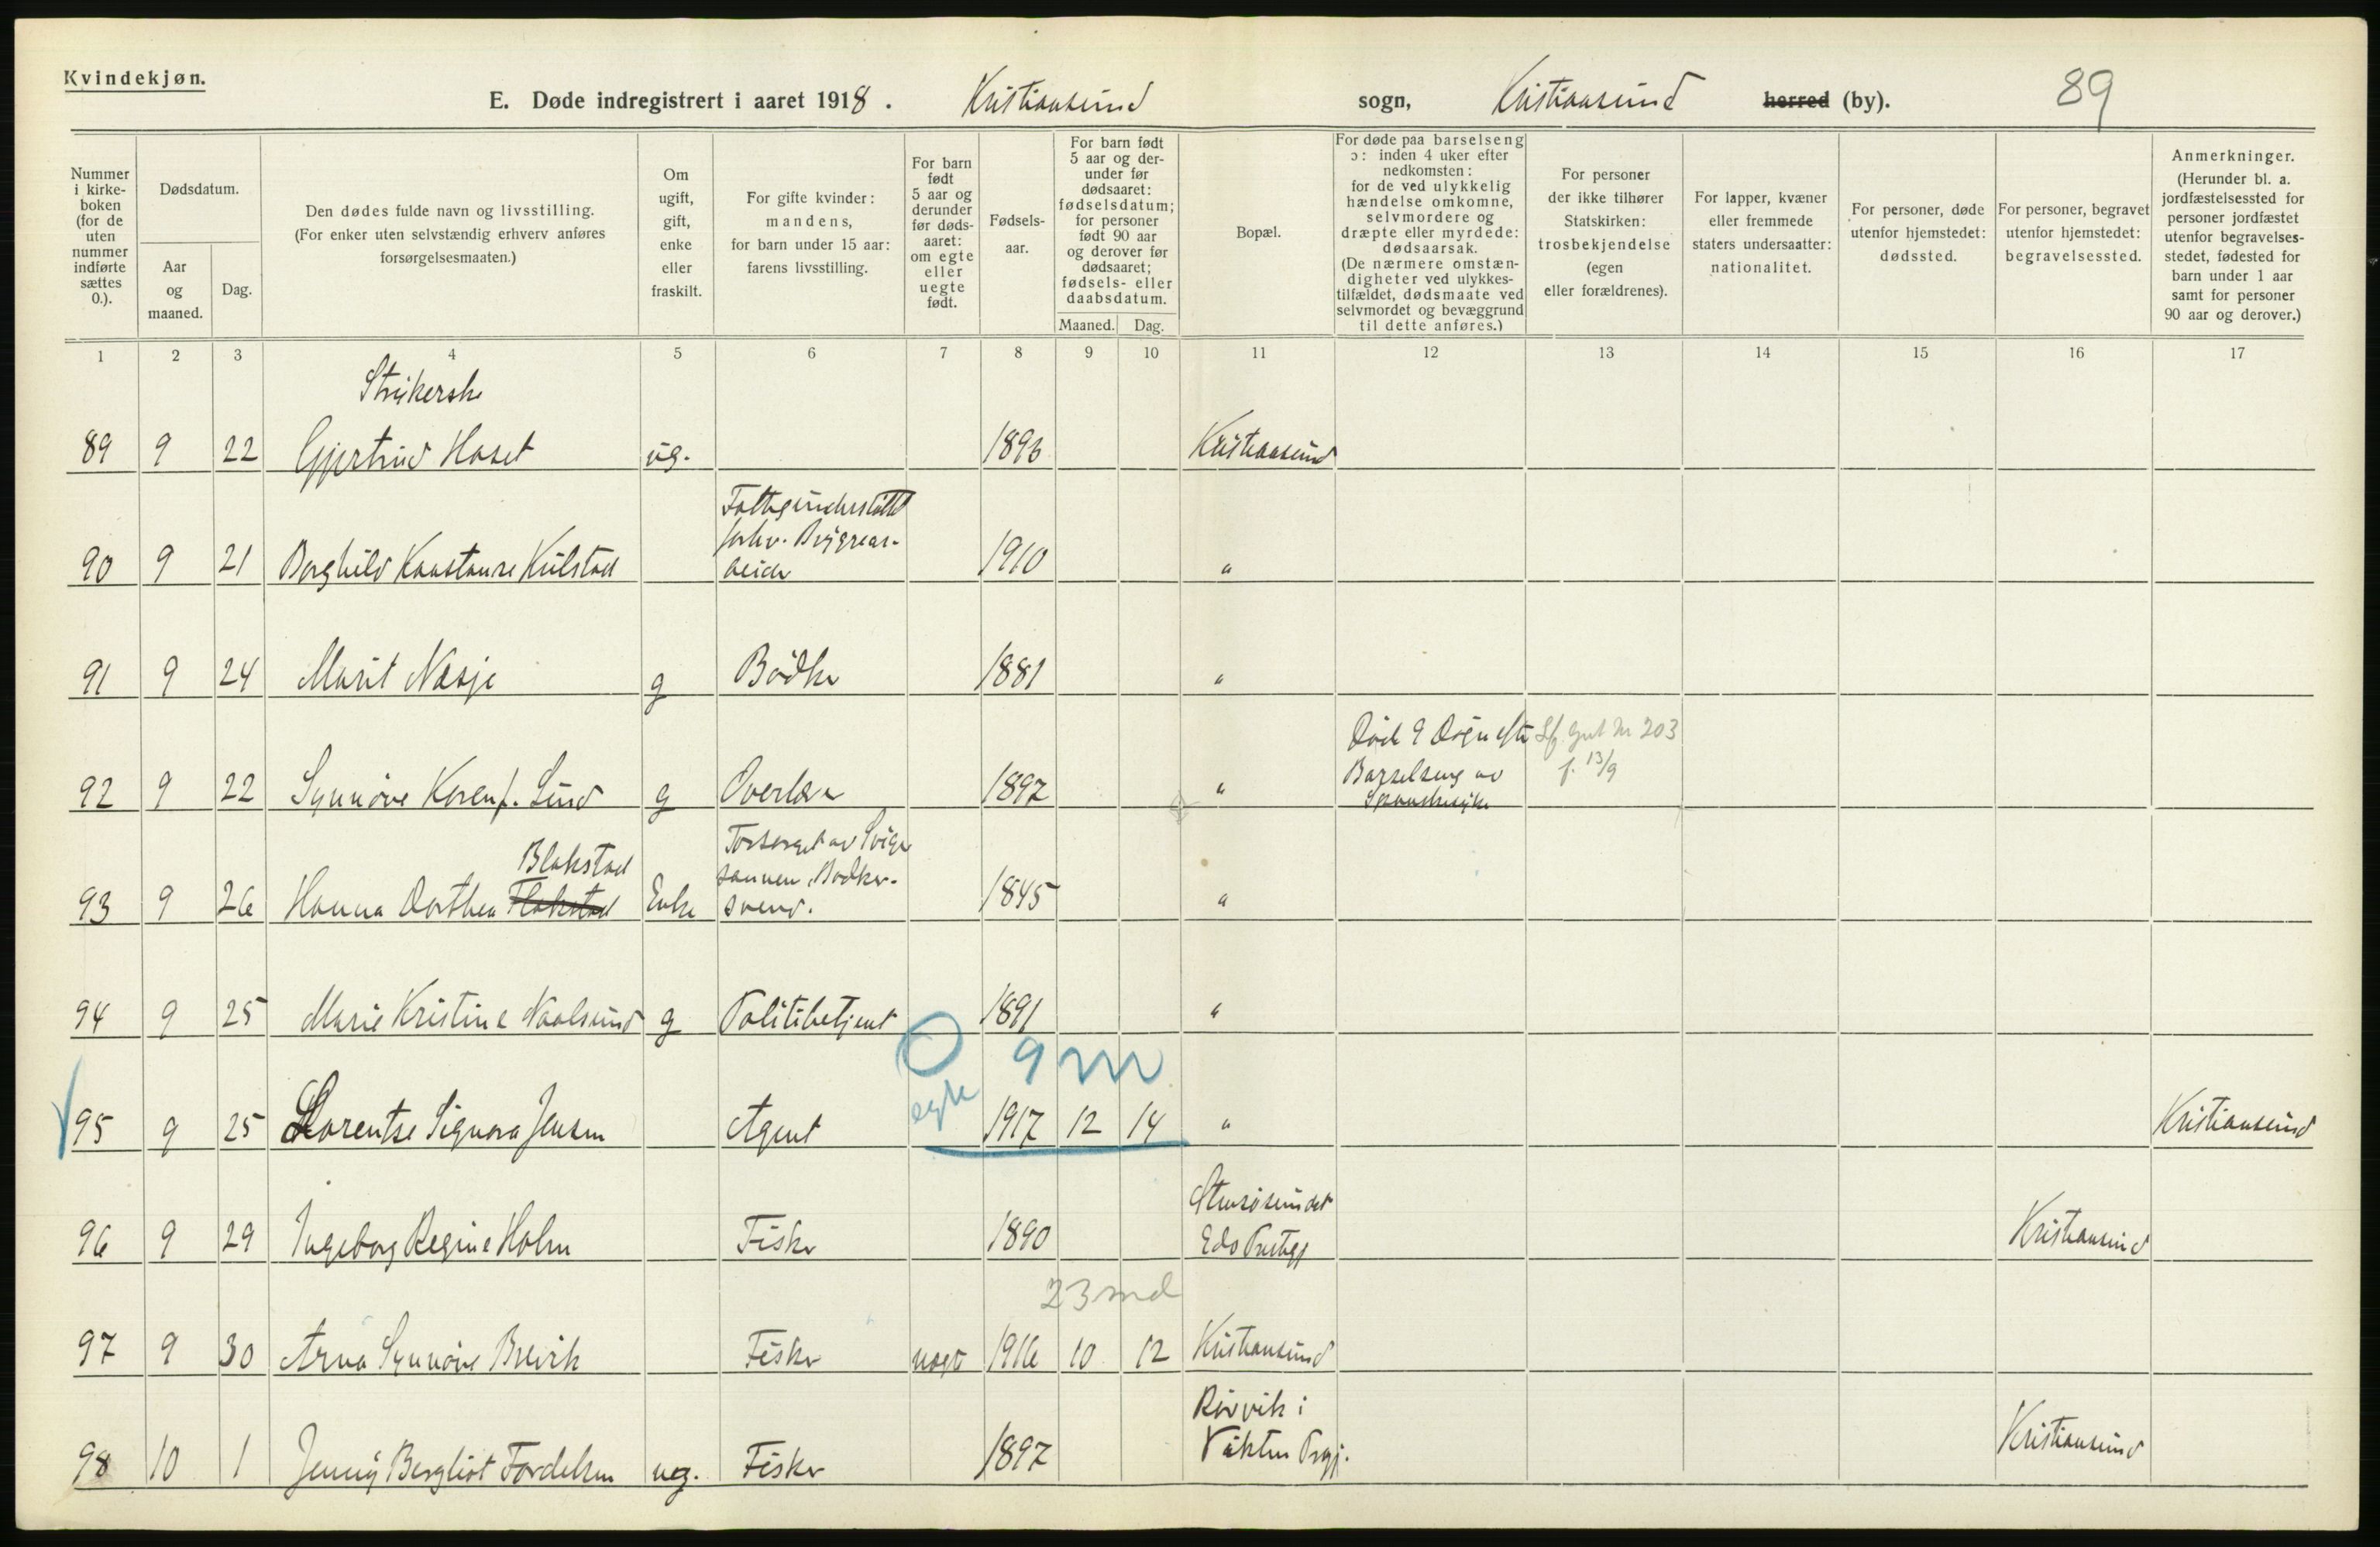 Kvindekjøn.
E. Døde indregistrert i aaret 1918. Kristiansund sogn, Kristiansund herred (by). 89
Nummer i kirke-boken (for de uten nummer indførte sættes 0.).
Dødsdatum.
Aar og maaned.
Dag.
Den dødes fulde navn og livsstilling. (For enker uten selvstændig erhverv anføres forsørgelsesmaaten.)
Om ugift, gift, enke eller fraskilt.
For gifte kvinder: mandens, for barn under 15 aar: farens livsstilling.
For barn født 5 aar og derunder før døds-aaret: om egte eller uegte født.
Fødsels-aar.
For barn født 5 aar og der-under før dødsaaret: fødselsdatum; for personer født 90 aar og derover før dødsaaret; fødsels- eller daabsdatum.
Maaned. Dag.
Bopæl.
For døde paa barselseng ɔ: inden 4 uker efter nedkomsten: for de ved ulykkelig hændelse omkomne, selvmordere og dræpte eller myrdede: dødsaarsak. (De nærmere omstæn-digheter ved ulykkes-tilfældet, dødsmaate ved selvmordet og bevæggrund til dette anføres.)
For personer der ikke tilhører Statskirken: trosbekjendelse (egen eller forældrenes).
For lapper, kvæner eller fremmede staters undersaatter: nationalitet.
For personer, døde utenfor hjemstedet: dødssted.
For personer, begravet utenfor hjemstedet: begravelsessted.
Anmerkninger. (Herunder bl. a. jordfæstelsessted for personer jordfæstet utenfor begravelses-stedet, fødested for barn under 1 aar samt for personer 90 aar og derover.)
1 2 3 4 5 6 7 8 9 10 11 12 13 14 15 16 17
Strykerske
89 9 22 Gjertrud Haset ug. 1896 Kristiansund
Fattigunderstøttet
forhv. Bryggear-
90 9 21 Borghild Konstanse Kulstad beider 1910 "
91 9 24 Marit Næsje g Bødker 1881 "
Død 9 Døgn efter
Barselseng av
Spanskesyke
Nr 203
f. 13/9
92 9 22 Synnøve Koren f. Lund g Overlærer 1897 "
Blakstad
Forsørget av Sviger
sønnen, Bødker-
93 9 26 Hanna Dorthea Flakstad Enke svend. 1845 "
94 9 25 Marie Kristine Naalsund g Politibetjent 1891 "
9 m
95 9 25 Lorentse Signora Jensen Agent egte 1917 12 14 " Kristiansund
Stensøsundet
96 9 29 Ingeborg Regine Holm Fisker 1890 Edø Prstgj Kristiansund
23 md
97 9 30 Arna Synnøve Brevik Fisker uegte 1916 10 12 Kristiansund
Rørvik i
98 10 1 Jenny Bergliot Fordelsen ug. Fisker 1897 Vikten Prgj. Kristiansund